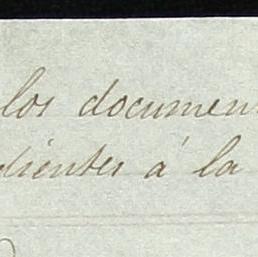 los documen
dientes á la